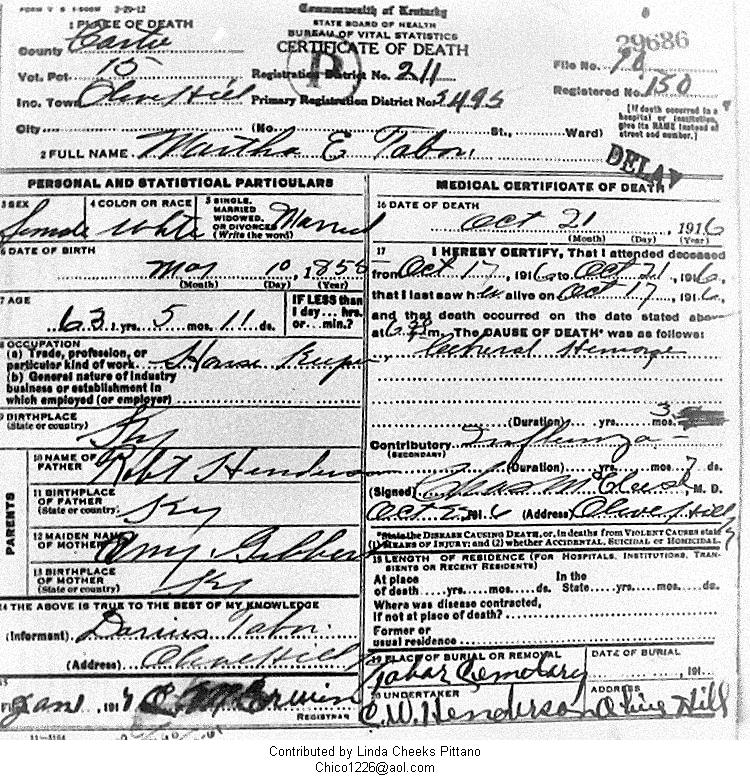 FORM V S 1-500M 3-29-12
Commonwealth of Kentucky
STATE BOARD OF HEALTH
BUREAU OF VITAL STATISTICS
CERTIFICATE OF DEATH
1 PLACE OF DEATH
County Carter
Vot. Pct. 15
Inc. Town Olive Hill
City (No. St., Ward)
Registration District No. 211
Primary Registration District No. 3495
29686
File No. 70
Registered No. 150
[If death occurred in a hospital or institution, give its NAME instead of street and number.]
2 FULL NAME Martha E Tabor
DELAY
PERSONAL AND STATISTICAL PARTICULARS
3 SEX female
4 COLOR OR RACE White
5 SINGLE, MARRIED WIDOWED, OR DIVORCED (Write the word) Married
6 DATE OF BIRTH
10, 185
(Month) (Day) (Year)
7 AGE
63 yrs. 5 mos. 11 ds.
IF LESS than 1 day... hrs. or... min.?
8 OCCUPATION
(a) Trade, profession, or particular kind of work House Keeper
(b) General nature of industry business or establishment in which employed (or employer)
9 BIRTHPLACE
(State or country) Ky
PARENTS
10 NAME OF FATHER Robt Henderson
11 BIRTHPLACE OF FATHER
(State or country) Ky
12 MAIDEN NAME OF MOTHER Amy
13 BIRTHPLACE OF MOTHER
(State or country) Ky
14 THE ABOVE IS TRUE TO THE BEST OF MY KNOWLEDGE
(Informant) Darius Tabor
(Address) Olive Hill
15
Jan 191
REGISTRAR
11-3184
MEDICAL CERTIFICATE OF DEATH
16 DATE OF DEATH
Oct 21, 1916
(Month) (Day) (Year)
17 I HEREBY CERTIFY, That I attended deceased
from Oct 17, 1916 to Oct 21, 1916,
that I last saw her alive on Oct 17, 1916,
and that death occurred on the date stated above
at 6 m. The CAUSE OF DEATH* was as follows:
Hemorage
(Duration) yrs. mos.
Contributory Influenza
(SECONDARY)
(Duration) yrs. mos. 7 ds.
(Signed) Chas M, M. D.
Oct 1916 (Address) Olive Hill Ky
*State the DISEASE CAUSING DEATH, or, in deaths from VIOLENT CAUSES state (1) MEANS OF INJURY; and (2) whether ACCIDENTAL, SUICIDAL or HOMICIDAL.
18 LENGTH OF RESIDENCE (FOR HOSPITALS, INSTITUTIONS, TRANSIENTS OR RECENT RESIDENTS)
At place of death yrs. mos. ds. In the State yrs. mos. ds.
Where was disease contracted, if not at place of death?
Former or usual residence
19 PLACE OF BURIAL OR REMOVAL
Tabor Cemetary
DATE OF BURIAL
, 191
20 UNDERTAKER
C. W. Henderson
ADDRESS
Olive Hill
Contributed by Linda Cheeks Pittano
Chico1226@aol.com